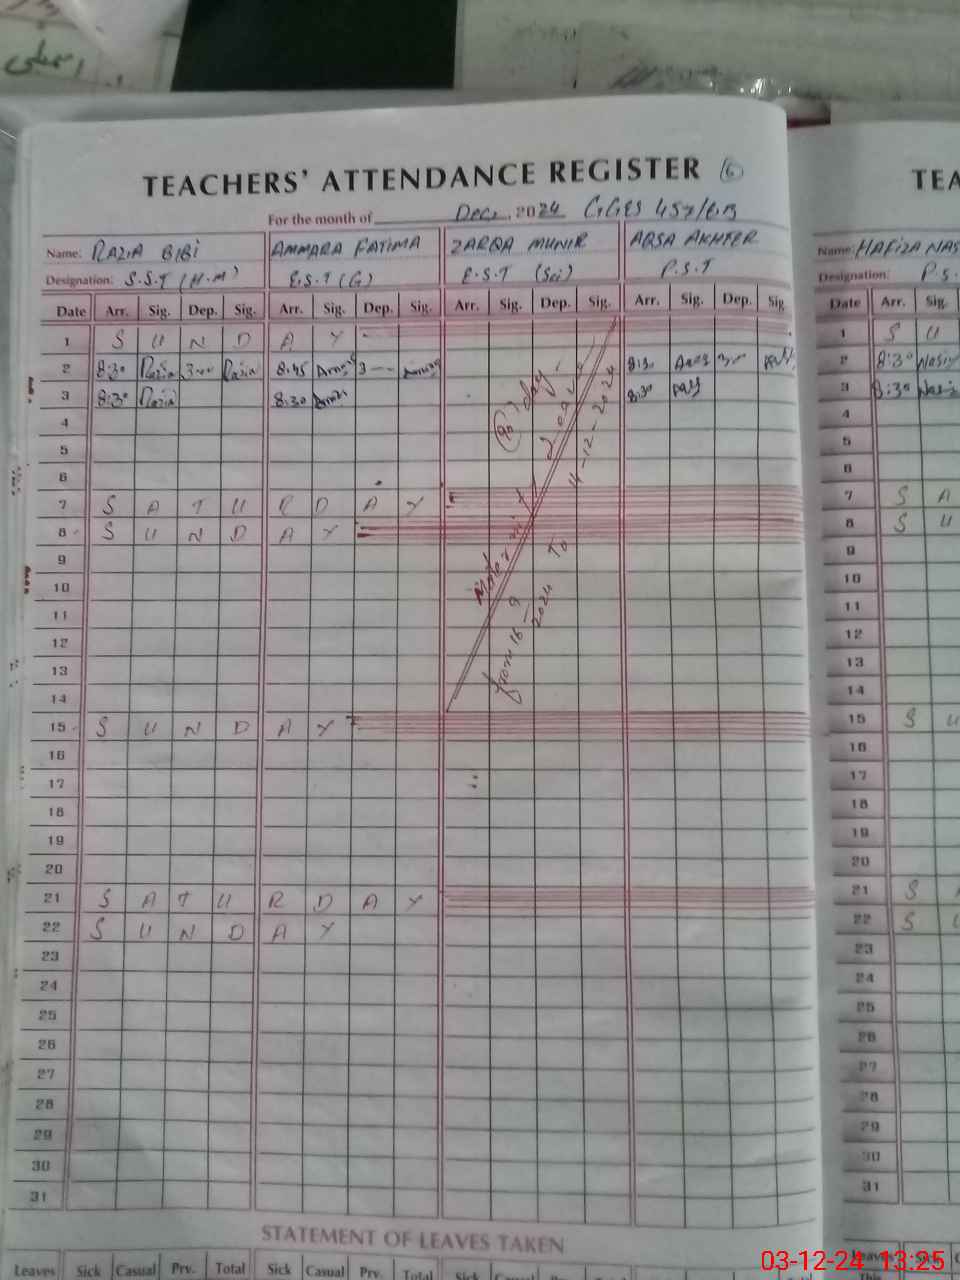 TEACHERS' ATTENDANCE REGISTER 6
TEA
For the month of Dec, 2024 GGES 457/GB
Name: RAZIA BIBI AMMARA FATIMA ZARQA MUNIR AQSA AKHTER
Name: HAFIZA NAS
Designation: S.S.T (H.M) E.S.T (G) E.S.T (Sci) P.S.T
Designation: P.S.
Date Arr. Sig. Dep. Sig. Arr. Sig. Dep. Sig. Arr. Sig. Dep. Sig. Arr. Sig. Dep. Sig.
Date Arr. Sig.
1 S U N D A Y
1 S U
2 8:30 Razia 3:00 Razia 8:45 8:30
2 8:30
3 8:30 Razia 8:30 8:30
3 8:30
4
4
5
5
6
6
7 S A T U R D A Y
7 S A
8 S U N D A Y
8 S U
9
9
10
10
11
11
12
12
13
13
14
14
Leave
from 16-9-2024 To 14-12-2024
15 S U N D A Y
15 S U
16
16
17
17
18
18
19
19
20
20
21 S A T U R D A Y
21 S A
22 S U N D A Y
22 S U
23
23
24
24
25
25
26
26
27
27
28
28
29
29
30
30
31
31
STATEMENT OF LEAVES TAKEN
Leaves Sick Casual Prv. Total Sick Casual Prv. Total Sick Casual
Leaves Sick
03-12-24 13:25